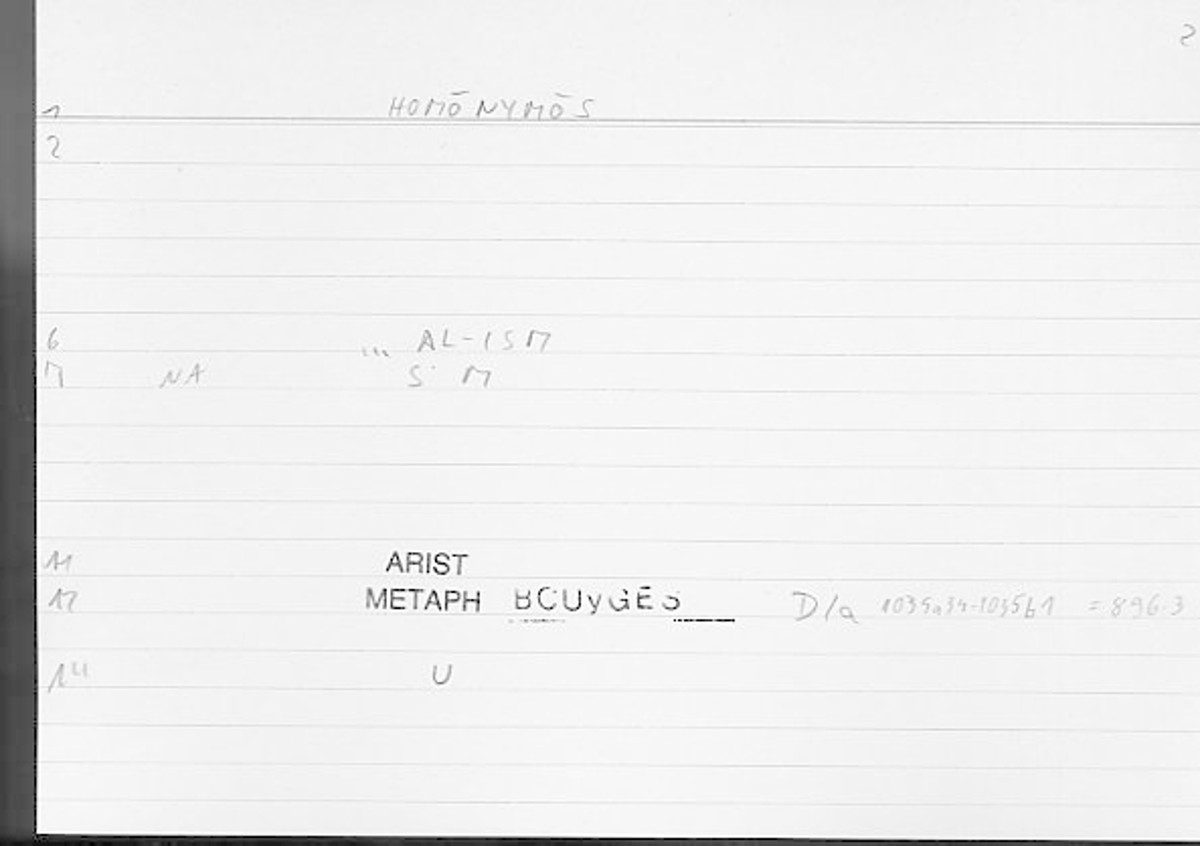 2
1 HOMŌNYMŌS
2
6 ... AL-ISM
7 NA S M
11 ARIST
12 METAPH BOUYGES D/a 1035a34-1035b1 = 896.3
14 U